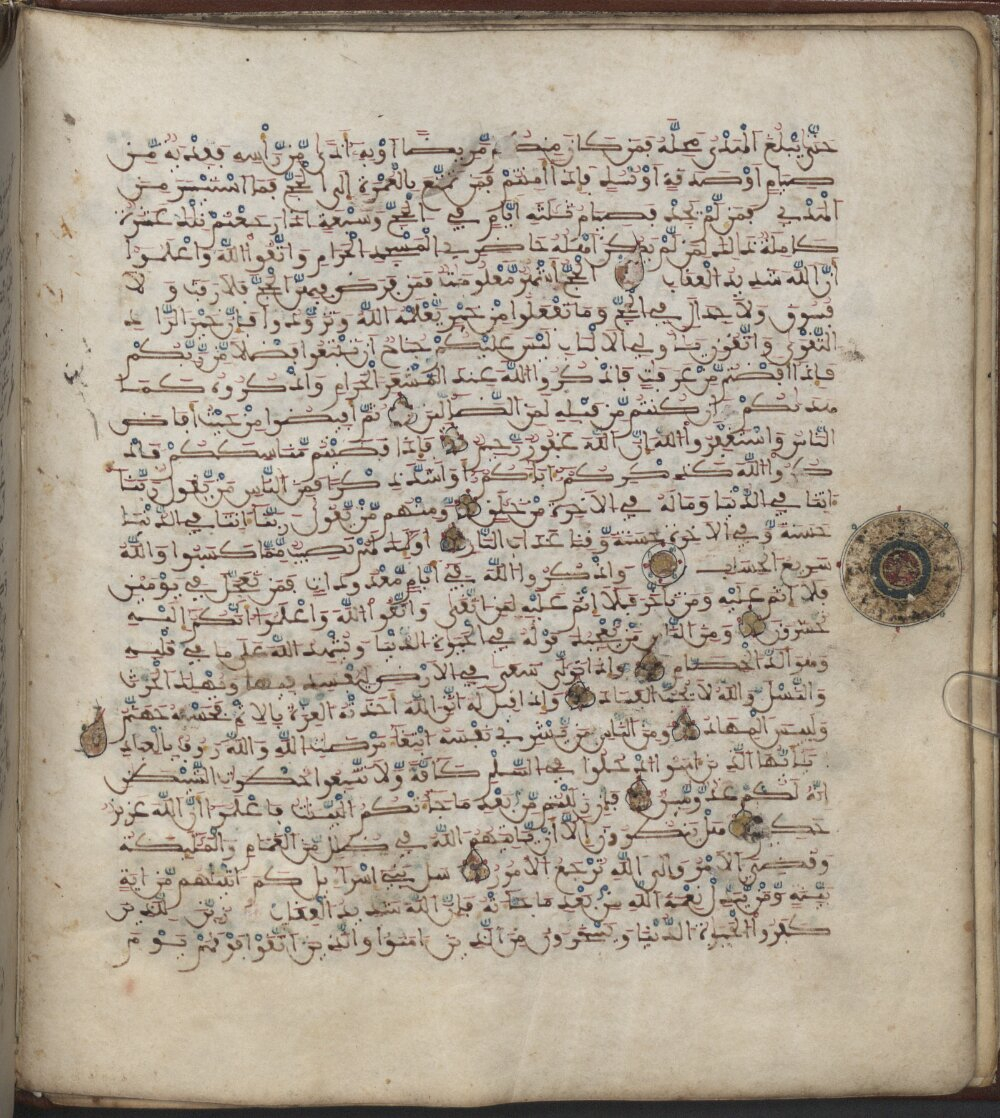 حتى يبلغ الهدى محله فمن كان منكم مريضا او به اذى من راسه ففدية من
صيام او صدقة او نسك فاذا امنتم فمن تمتع بالعمرة الى الحج فما استيسر من
الهدي فمن لم يجد فصيام ثلثة ايام في الحج وسبعة اذا رجعتم تلك عشرة
كاملة ذالك لمن لم يكن اهله حاضري المسجد الحرام واتقوا الله واعلموا
ان الله شديد العقاب الحج اشهر معلومت فمن فرض فيهن الحج فلا رفث ولا
فسوق ولا جدال في الحج وما تفعلوا من خير يعلمه الله وتزودوا فإن خير الزاد
التقوى واتقون ياولي الالباب ليس عليكم جناح ان تبتغوا فضلا من ربكم
فاذا افضتم من عرفت فاذكروا الله عند المشعر الحرام واذكروه كما
هديكم وان كنتم من قبله لمن الضالين ثم افيضوا من حيث افاض
الناس واستغفروا الله ان الله غفور رحيم فاذا قضيتم مناسككم فاذ
كروا الله كذكركم اباكم او اشد ذكرا فمن الناس من يقول ربنا
اتنا في الدنيا وماله في الاخرة من خلق ومنهم من يقول ربنا اتنا في الدنيا
حسنة وفي الاخرة حسنة وقنا عذاب النار اوليك لهم نصيب مما كسبوا والله
سريع الحساب واذكروا الله في ايام معدودات فمن تعجل في يومين
فلا اثم عليه ومن تاخر فلا اثم عليه لمن اتقى واتقوا الله واعلموا انكم اليه
تحشرون ومن الناس من يعجبك قوله في الحيوة الدنيا ويشهد الله على ما في قلبه
وهو الد الخصام واذا تولى سعى في الارض ليفسد فيها ويهلك الحرث
والنسل والله لا يحب الفساد واذا قيل له اتق الله اخذته العزة بالاثم فحسبه جهنم
ولبيس المهاد ومن الناس من يشري نفسه ابتغا مرضات الله والله روف بالعباد
يايها الذين امنوا ادخلوا في السلم كافة ولا تتبعوا خطوات الشيطن
انه لكم عدو مبين فإن زللتم من بعد ما جاتكم البينت فاعلموا ان الله عزيز
حكيم هل ينظرون الا ان ياتيهم الله في ظلل من الغمام والمليكة
وقضي الامر والى الله ترجع الامور سل بني اسرايل كم اتينهم من اية
بينة ومن يبدل نعمة الله من بعد ما جاته فان الله شديد العقاب زين للذين
كفروا الحيوة الدنيا ويسخرون من الذين امنوا والذين اتقوا فوقهم يوم